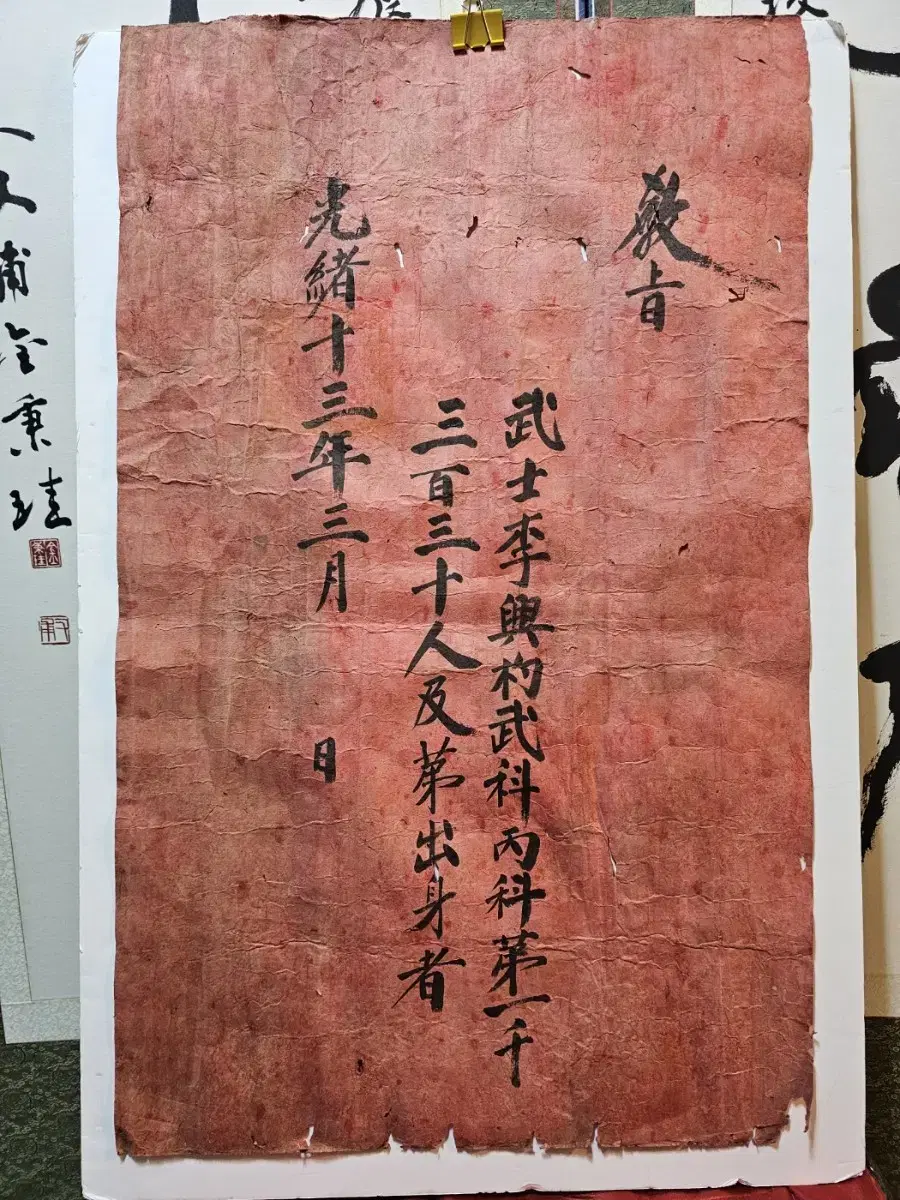 敎旨
武士李興杓武科丙科第一千
三百三十人及第出身者
光緖十三年三月 日